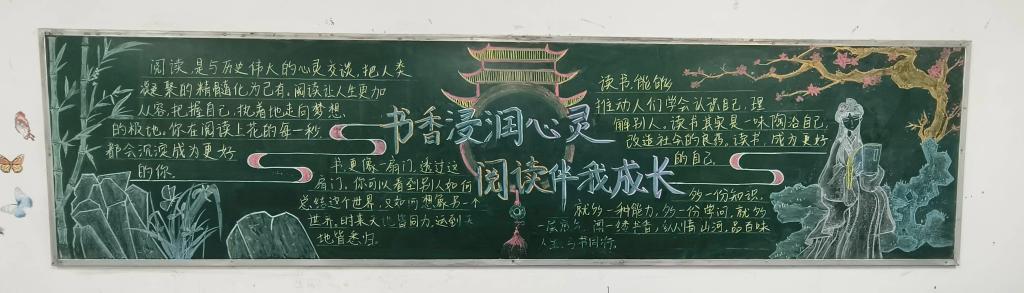 阅读,是与历史伟大的心灵交谈,把人类
凝聚的精髓化为己有。阅读让人生更加
从容,把握自己,执着地走向梦想
的极地。你在阅读上花的每一秒
都会沉淀成为更好
的你.
书香浸润心灵
阅读伴我成长
书更像一扇门,透过这
扇门,你可以看到别人如何
总结这个世界,又如何想象另一个
世界。时来天地皆同力,达到
地皆悉归。
读书,能够
推动人们学会认识自己,理
解别人。读书其实是一味陶冶自己,
改造社会的良药。读书,成为更好
的自己.
多一份知识,
就多一种能力,多一份学问,就多
一层底气。阅一缕书香,纵情山河,品百味
人生,与书同行。